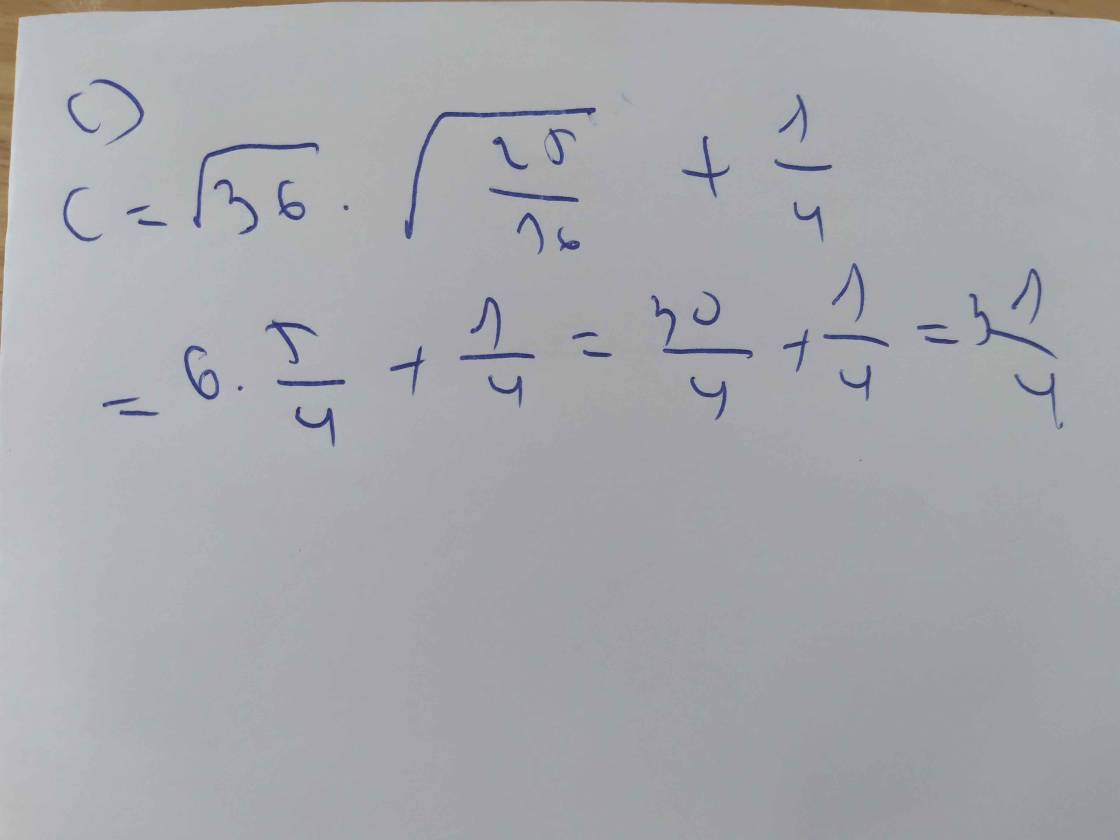 c)
C = √36 . √(25/16) + 1/4
= 6 . 5/4 + 1/4 = 30/4 + 1/4 = 31/4